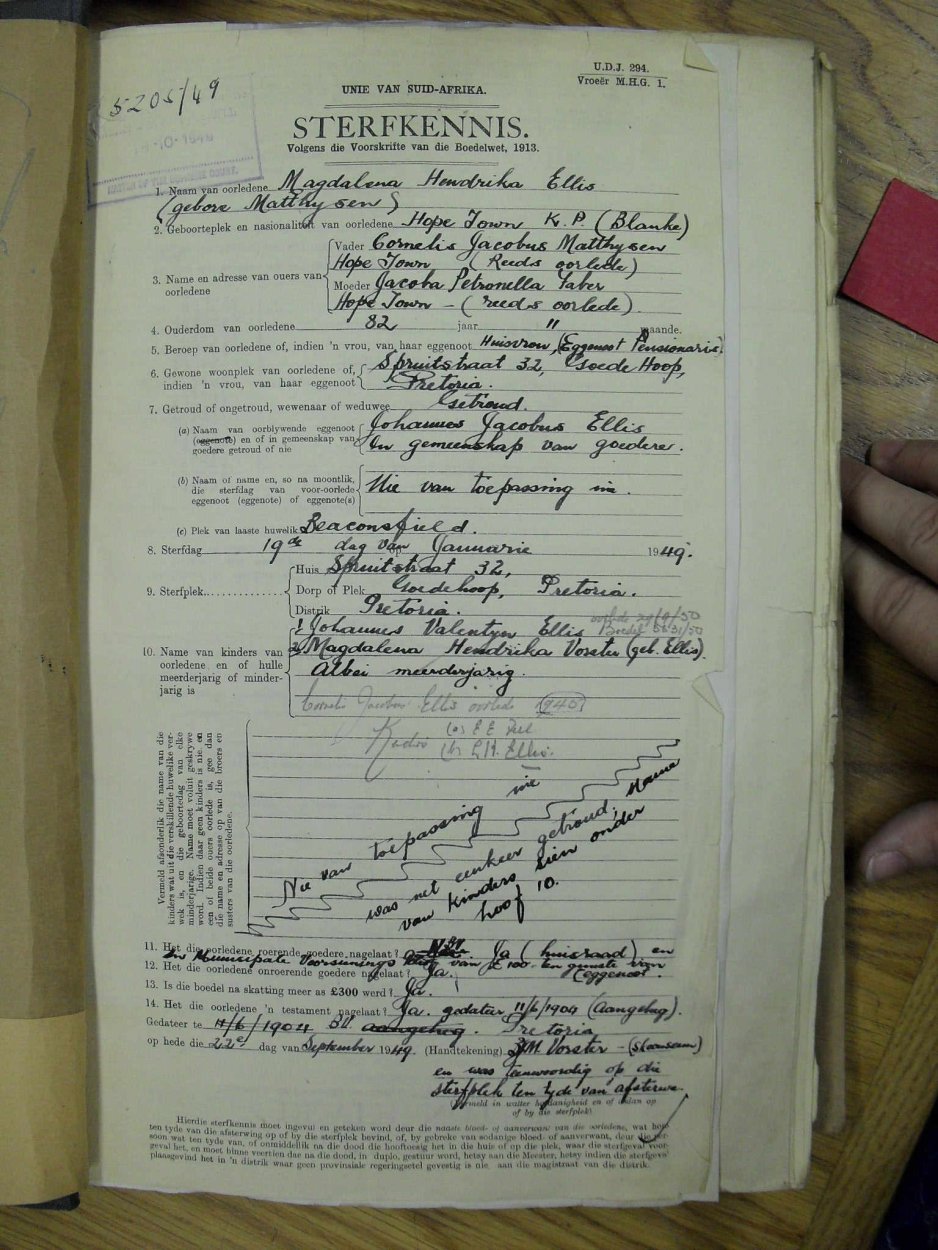 U.D.J. 294.
Vroeër M.H.G. 1.
5205/49
UNIE VAN SUID-AFRIKA.
STERFKENNIS.
Volgens die Voorskrifte van die Boedelwet, 1913.
1. Naam van oorledene Magdalena Hendrika Ellis
(gebore Matthysen)
2. Geboorteplek en nasionaliteit van oorledene Hope Town K.P. (Blanke)
3. Name en adresse van ouers van oorledene
Vader Cornelis Jacobus Matthysen
Hope Town (Reeds oorlede)
Moeder Jacoba Petronella Taber
Hope Town - (reeds oorlede)
4. Ouderdom van oorledene 82 jaar " maande.
5. Beroep van oorledene of, indien 'n vrou, van haar eggenoot Huisvrou, (Eggenoot Pensionaris.
6. Gewone woonplek van oorledene of, indien 'n vrou, van haar eggenoot
Spruitstraat 32, Goede Hoop,
Pretoria.
7. Getroud of ongetroud, wewenaar of weduwee Getroud.
(a) Naam van oorblywende eggenoot (eggenote) en of in gemeenskap van goedere getroud of nie
Johannes Jacobus Ellis
In gemeenskap van goedere.
(b) Naam of name en, so na moontlik, die sterfdag van voor-oorlede eggenoot (eggenote) of eggenote(s)
Nie van toepassing nie.
(c) Plek van laaste huwelik Beaconsfield.
8. Sterfdag 19de dag van Januarie 1949.
9. Sterfplek
Huis Spruitstraat 32,
Dorp of Plek Goedehoop, Pretoria.
Distrik Pretoria.
10. Name van kinders van oorledene en of hulle meerderjarig of minderjarig is
1. Johannes Valentyn Ellis
2. Magdalena Hendrika Vorster (geb. Ellis).
Albei meerderjarig.
Cornelis Jacobus Ellis oorlede 1940
(b) E.H. Ellis.
Vermeld afsonderlik die name van die
kinders wat uit die verskillende huwelike verwek
is, en die geboortedag van elke
minderjarige. Name moet voluit geskrywe
word. Indien daar geen kinders is nie en
een of beide ouers oorlede is, gee dan
die name en adresse op van die broers en
susters van die oorledene.
Nie van toepassing nie
was net eenkeer getroud; Name
van kinders sien onder
hoof 10.
11. Het die oorledene roerende goedere nagelaat? Ja (huisraad) en
'n Munisipale Voorsienings van £100 ten gunste van
12. Het die oorledene onroerende goedere nagelaat? Ja. eggenoot
13. Is die boedel na skatting meer as £300 werd? Ja.
14. Het die oorledene 'n testament nagelaat? Ja. gedateer 11/6/1904 (Aangeheg).
Gedateer te 11/6/1904 aangeheg. Pretoria
op hede die 22e dag van September 1949. (Handtekening) M. Vorster - (Skoonseun)
en was teenwoordig op die
sterfplek ten tyde van afsterwe.
(Vermeld in watter hoedanigheid en of al dan op
of by die sterfplek)
Hierdie sterfkennis moet ingevul en geteken word deur die naaste bloed- of aanverwant van die oorledene, wat
ten tyde van die afsterwing op of by die sterfplek bevind, of, by gebreke van sodanige bloed- of aanverwant, deur die
soon wat ten tyde van, of onmiddellik na die dood die hooftoesig het in die huis of op die plek, waar die sterfgeval
geval het, en moet binne veertien dae na die dood, in duplo, gestuur word, hetsy aan die Meester, hetsy indien die
plaasgevind het in 'n distrik waar geen provinsiale regeringsetel gevestig is nie, aan die magistraat van die distrik.